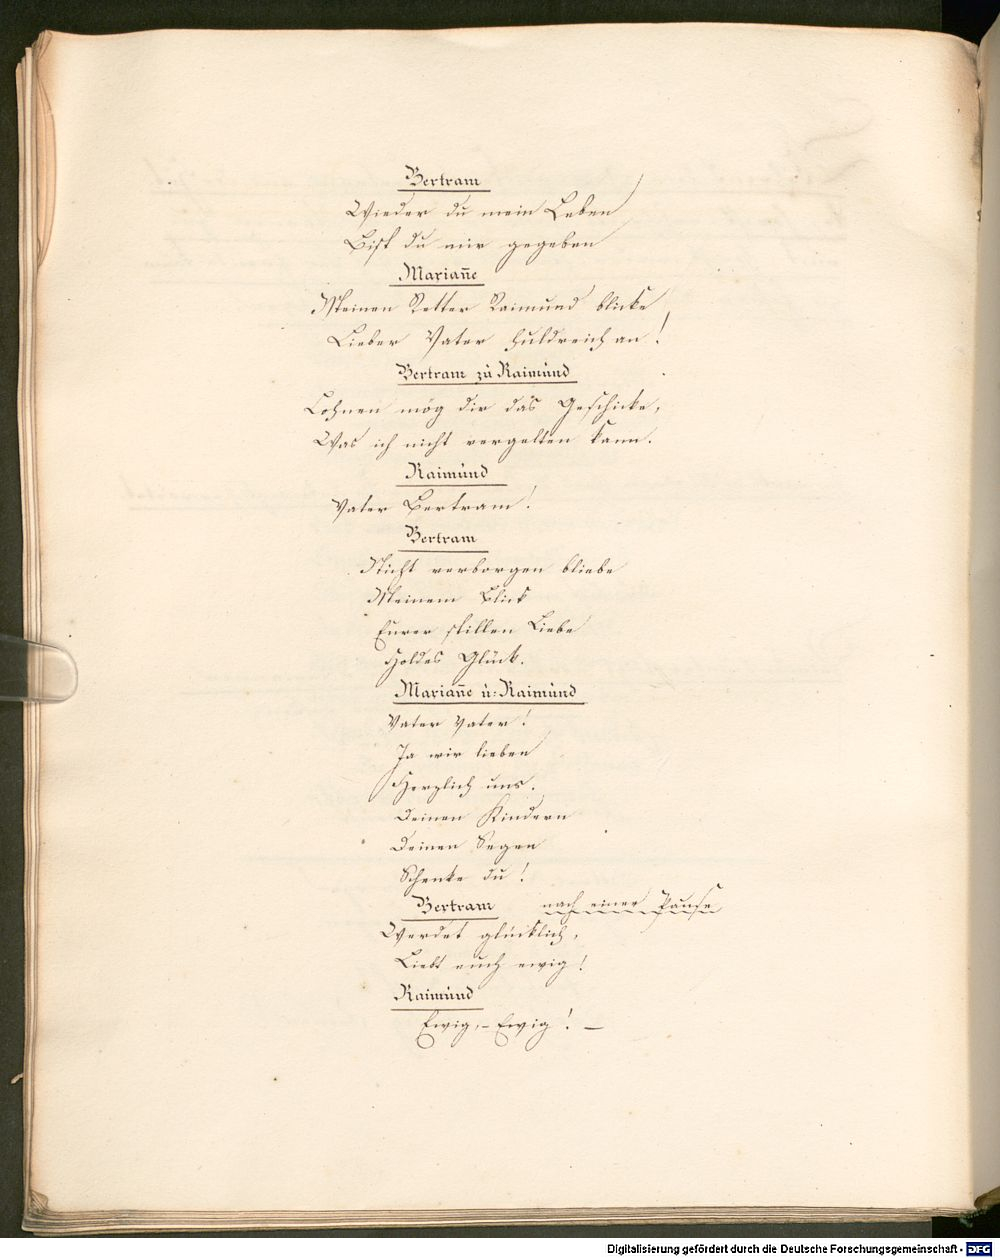 Bertram
Wieder du mein Leben
Bist du mir gegeben
Marian̄e
Meinen Retter Raimund blicke
Lieber Vater huldreich an!
Bertram zu Raimund
Lohnen mög dir das Geschicke,
Was ich nicht vergelten kann.
Raimund
Vater Bertram!
Bertram
Nicht verborgen bliebe
Meinem Blick
Eurer stillen Liebe
Holdes Glück.
Marian̄e u: Raimund
Vater Vater!
Ja wir lieben
Herzlich uns.
Deinen Kindern
Deinen Segen
Schenke du!
Bertram nach einer Pause
Werdet glücklich,
Liebt euch ewig!
Raimund
Ewig, – Ewig! –
Digitalisierung gefördert durch die Deutsche Forschungsgemeinschaft - DFG